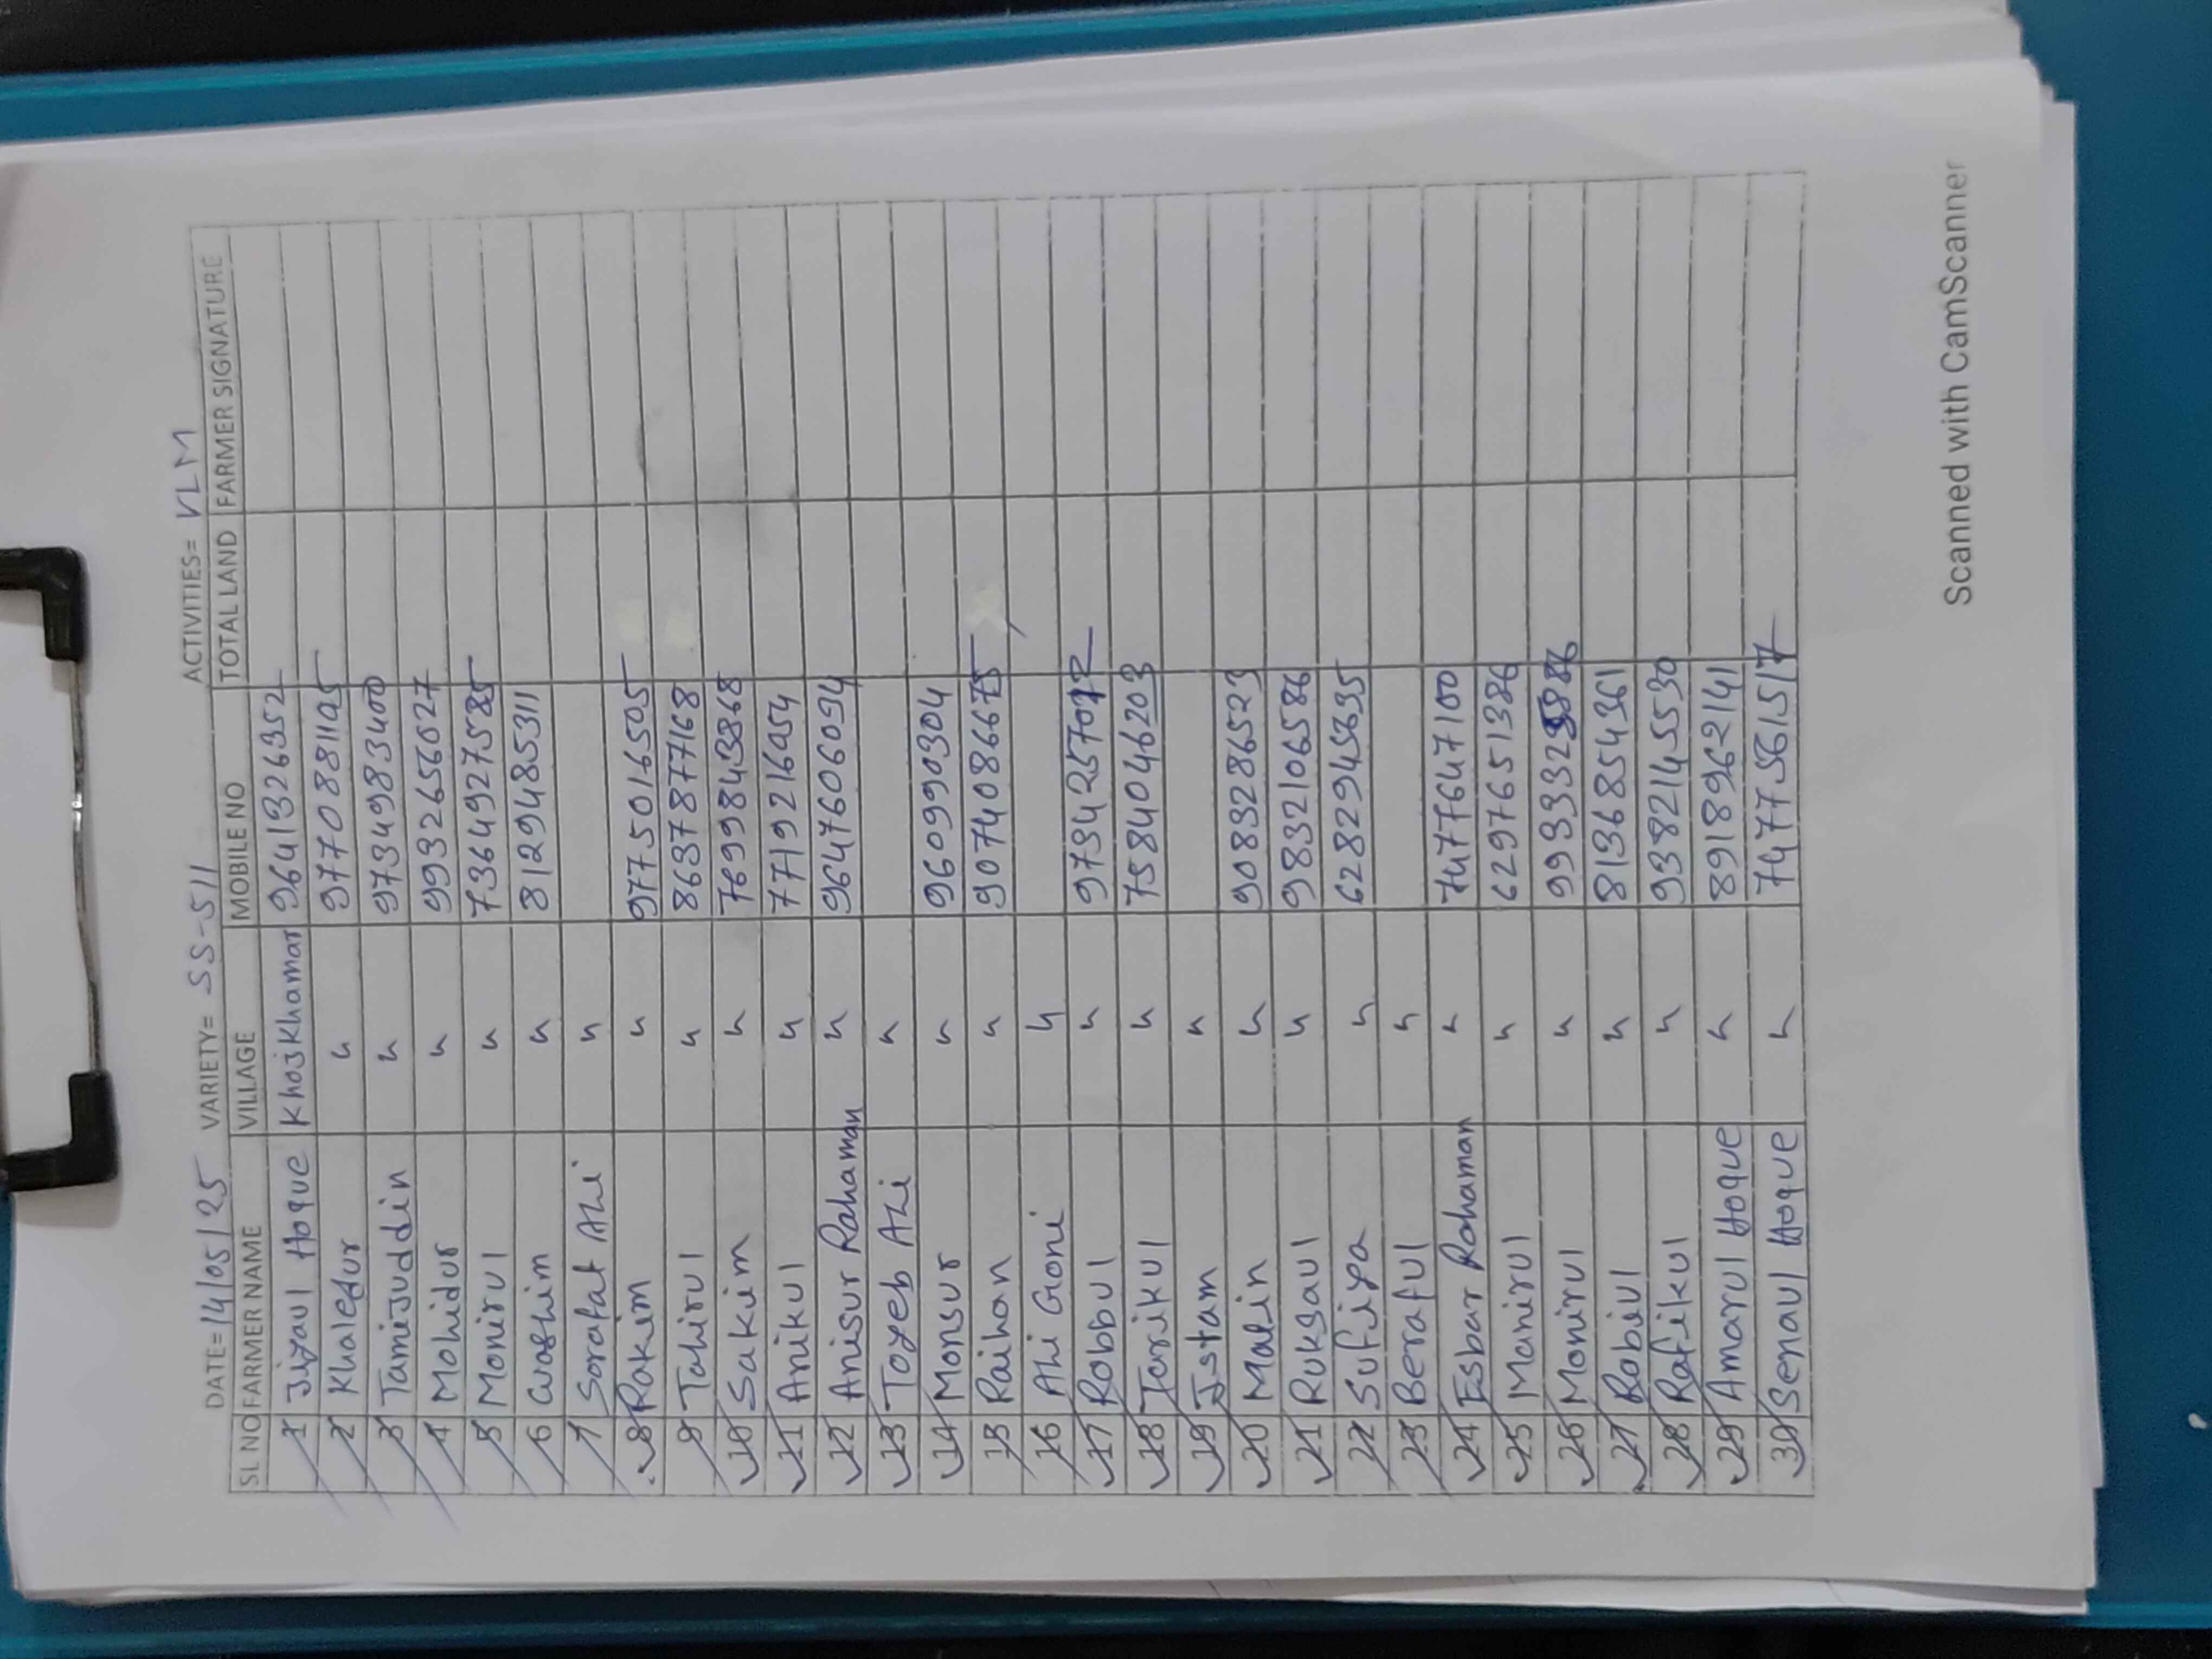 DATE=14/05/25 VARIETY= SS-511 ACTIVITIES= VLM
SL NO FARMER NAME VILLAGE MOBILE NO TOTAL LAND FARMER SIGNATURE
1 Jiyaul Hoque Khojkhamar 9641326352
2 Khaledur " 9770881195
3 Tamijuddin " 9734983400
4 Mohidur " 9932656027
5 Monirul " 7364927585
6 Washim " 8129485311
7 Sorafat Ali "
8 Rokim " 9775016505
9 Tahirul " 8637877168
10 Sakim " 7699843868
11 Anikul " 7719216954
12 Anisur Rahaman " 9647606094
13 Toyeb Ali "
14 Monsur " 9609990304
15 Raihan " 9074086675
16 Ali Goni "
17 Robbul " 9734257012
18 Tarikul " 7584046203
19 Istam "
20 Malin " 9083286523
21 Ruksaul " 9832106586
22 Sufiya " 6282945635
23 Beraful "
24 Esbar Rohaman " 7477647100
25 Manirul " 6297651386
26 Monirul "
27 Robiul " 8136854361
28 Rafikul " 9382145530
29 Amarul Hoque " 8918962141
30 Senaul Hoque " 7477561517
Scanned with CamScanner